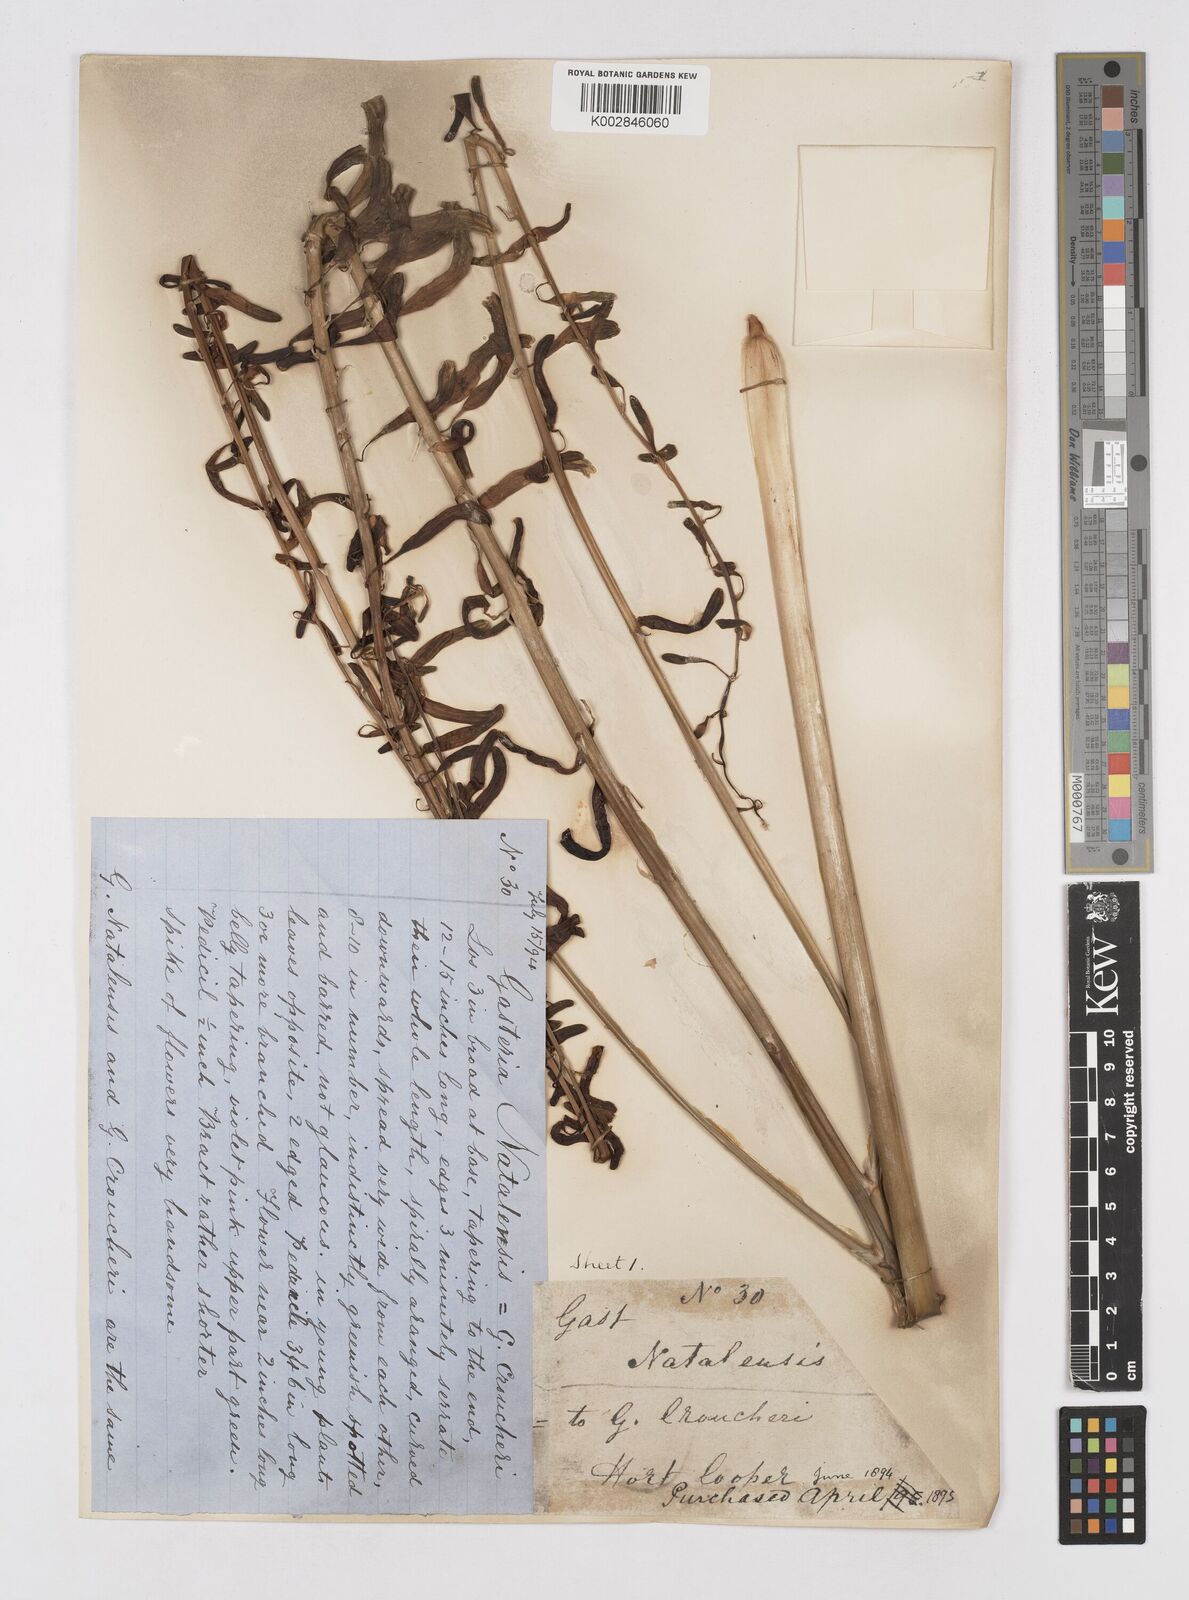 ROYAL BOTANIC GARDENS KEW
K002846060
No 30
July 15/94
Gasteria Natalensis = G. Croucheri
Lvs 3 in broad at base, tapering to the end,
12-15 inches long, edges 3 minutely serrate
their whole length, spirally aranged, curved
downwards, spread very wide from each other,
8-10 in number, indistinctly greenish spotted
and barred, not glaucous. in young plants
leaves opposite, 2 edged Peduncle 3/4 in long
3 or more branched Flower near 2 inches long
belly tapering, violet pink upper part green.
Pedicil ½ inch Bract rather shorter
spike of flowers very handsome
G. Natalensis and G. Croucheri are the same
Sheet 1.
No 30
Gast
Natalensis
= to G. Croucheri
Hort Cooper June 1894
Purchased April 1895
inches
Density
Don Williams
centimeters
M000767
Kew
0 1 2 3 4 5 6 7 8 9 10
cm
copyright reserved